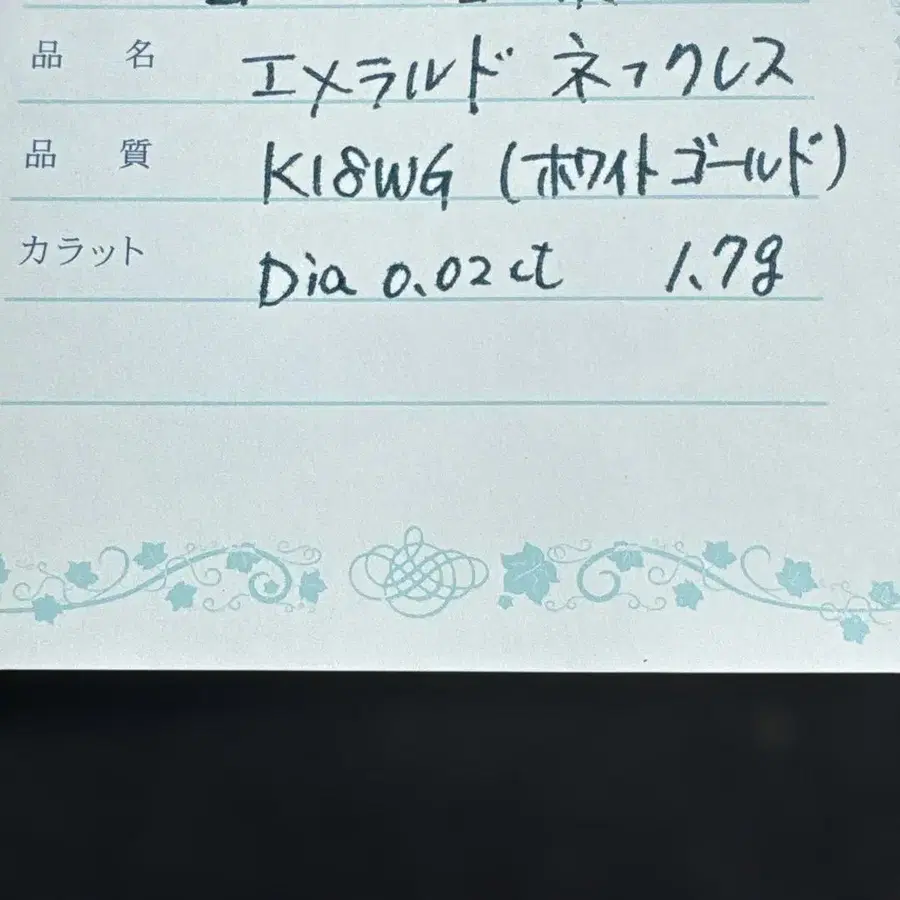 品名 エメラルド ネックレス
品質 K18WG (ホワイトゴールド)
カラット Dia 0.02ct 1.7g